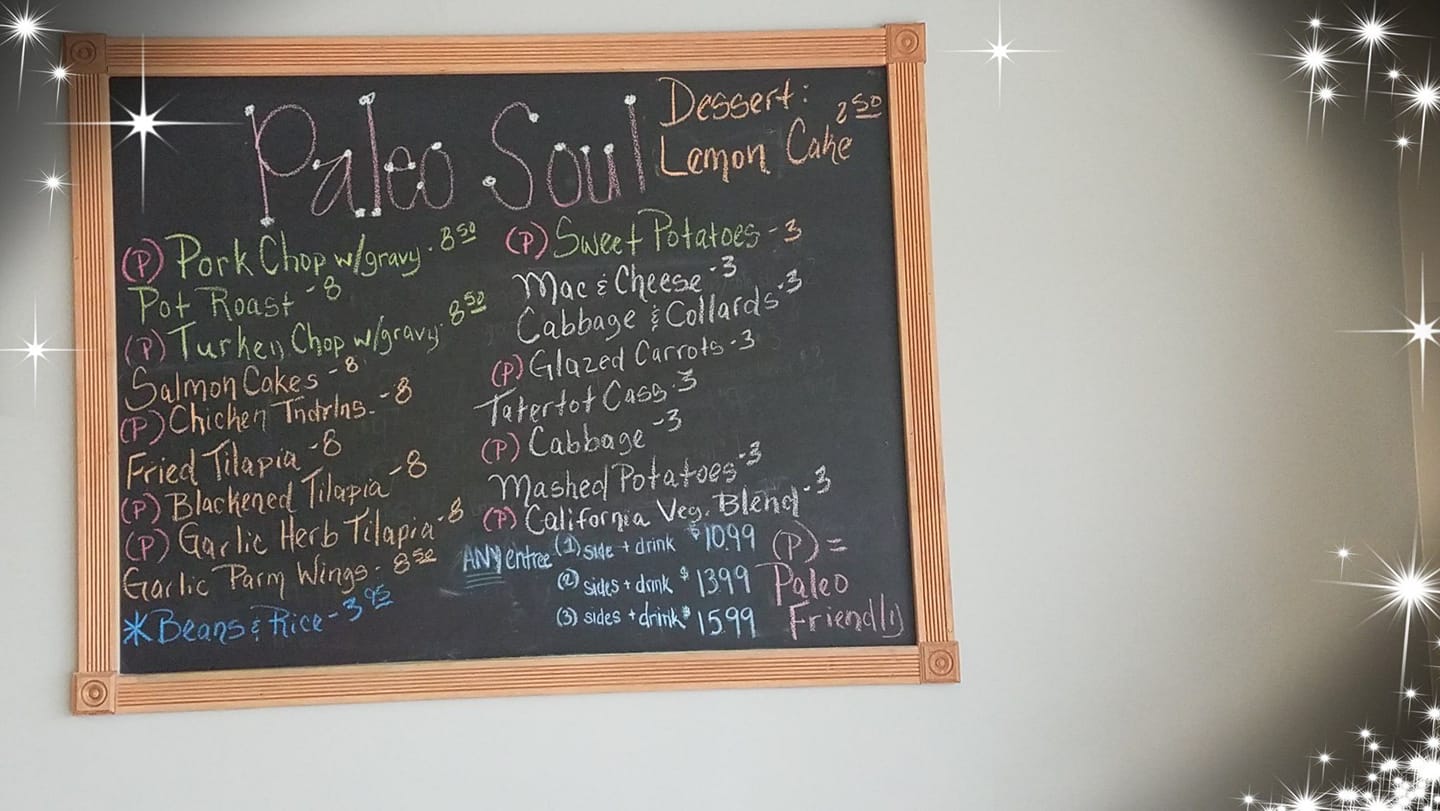 Paleo Soul
Dessert: 2 50
Lemon Cake
(P) Pork Chop w/gravy - 8 50
Pot Roast - 8
(P) Turkey Chop w/gravy - 8 50
Salmon Cakes - 8
(P) Chicken Tndrlns. - 8
Fried Tilapia - 8
(P) Blackened Tilapia - 8
(P) Garlic Herb Tilapia - 8
Garlic Parm Wings - 8 50
*Beans & Rice - 3 95
(P) Sweet Potatoes - 3
Mac & Cheese - 3
Cabbage & Collards - 3
(P) Glazed Carrots - 3
Tatertot Cass - 3
(P) Cabbage - 3
Mashed Potatoes - 3
(P) California Veg. Blend - 3
ANY entree (1) side + drink $10.99
(2) sides + drink $13.99
(3) sides + drink $15.99
(P) =
Paleo
Friendly